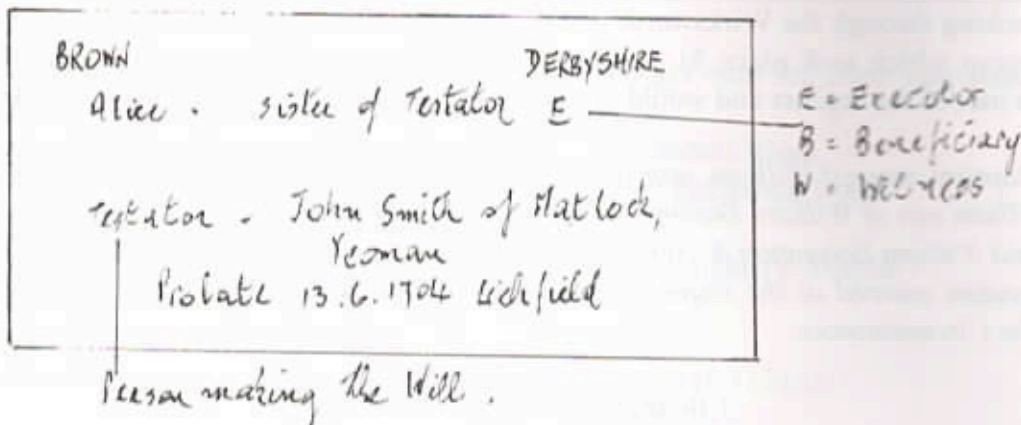 BROWN DERBYSHIRE
Alice . sister of Testator E
E = Executor
B = Beneficiary
W = Witness
Testator . John Smith of Matlock,
Yeoman
Probate 13.6.1704 Lichfield
Person making the Will .